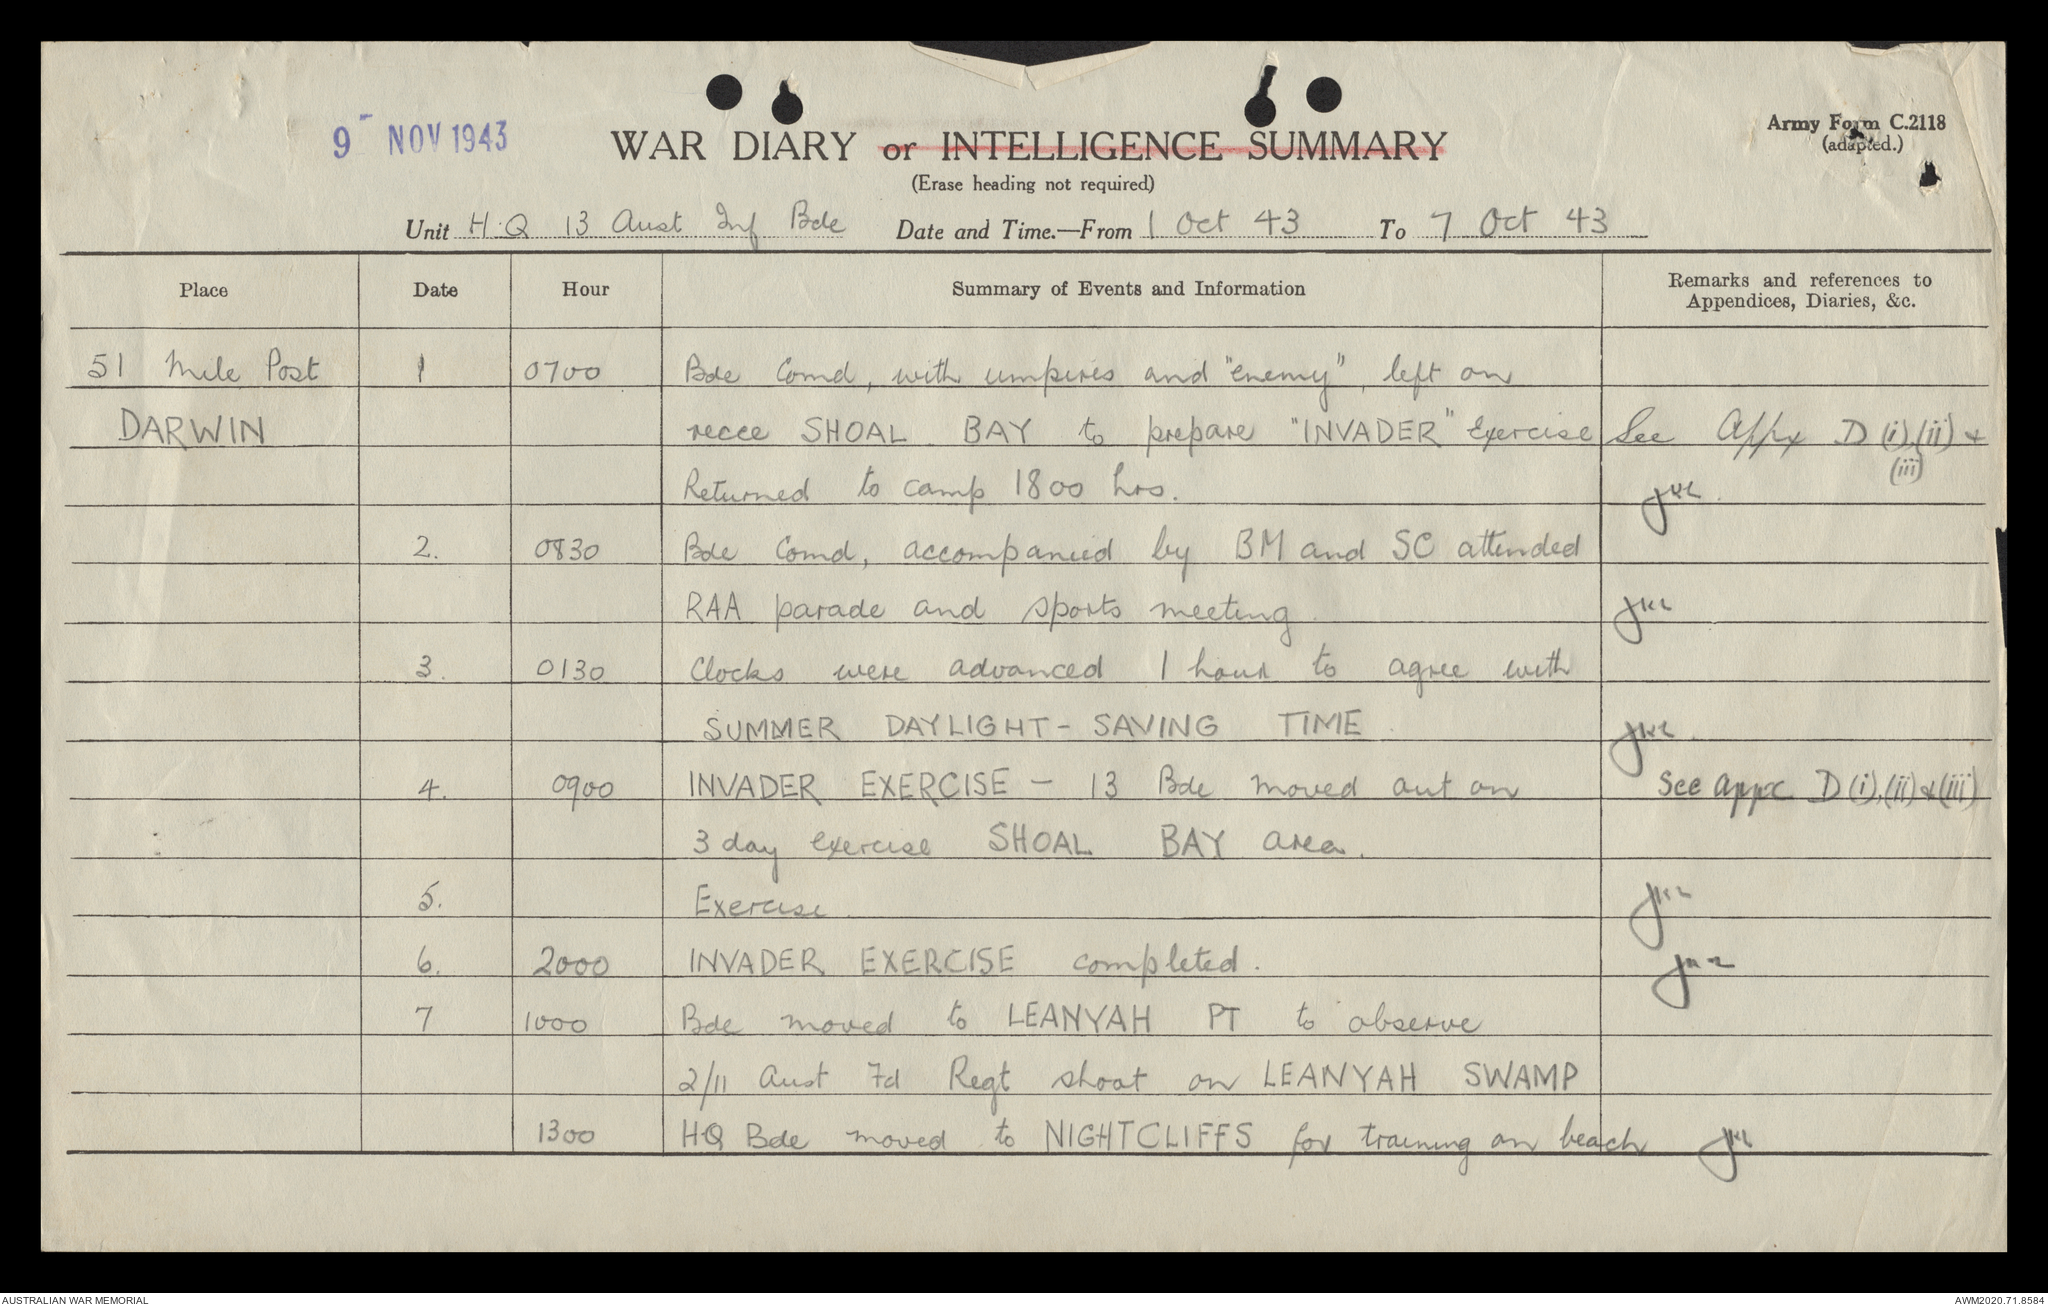 9 - NOV 1943
WAR DIARY or INTELLIGENCE SUMMARY
(Erase heading not required)
Army Form C.2118
(adapted.)
Unit H.Q 13 Aust Inf Bde Date and Time.—From 1 Oct 43 To 7 Oct 43
Place Date Hour Summary of Events and Information Remarks and references to
Appendices, Diaries, &c.
51 Mile Post 1 0700 Bde Comd, with umpires and "enemy", left on
DARWIN recce SHOAL BAY to prepare "INVADER" Exercise See Appx D (i),(ii) &
(iii)
Returned to camp 1800 hrs.
2. 0830 Bde Comd, accompanied by BM and SC attended
RAA parade and sports meeting.
3. 0130 Clocks were advanced 1 hour to agree with
SUMMER DAYLIGHT-SAVING TIME.
4. 0900 INVADER EXERCISE - 13 Bde moved out on See Appx D (i),(ii) & (iii)
3 day exercise SHOAL BAY area.
5. Exercise.
6. 2000 INVADER EXERCISE completed.
7 1000 Bde moved to LEANYAH PT to observe
2/11 Aust Fd Regt shoot on LEANYAH SWAMP
1300 HQ Bde moved to NIGHTCLIFFS for training on beach
AUSTRALIAN WAR MEMORIAL AWM2020.71.8584